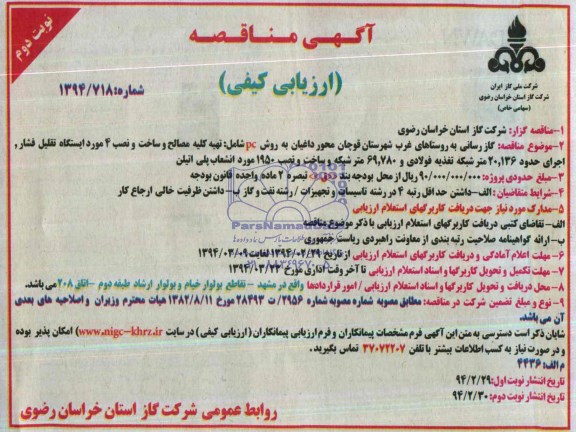 نوبت دوم
آگهی مناقصه
(ارزیابی کیفی)
شماره: ۱۳۹۴/۷۱۸
شرکت ملی گاز ایران
شرکت گاز استان خراسان رضوی
(سهامی خاص)
۱-مناقصه گزار: شرکت گاز استان خراسان رضوی
۲-موضوع مناقصه: گاز رسانی به روستاهای غرب شهرستان قوچان محور داغیان به روش pc شامل: تهیه کلیه مصالح و ساخت و نصب ۴ مورد ایستگاه تقلیل فشار ,
اجرای حدود ۲۰,۱۳۶ متر شبکه تغذیه فولادی و ۶۹,۷۸۰ متر شبکه و ساخت و نصب ۱۹۵۰ مورد انشعاب پلی اتیلن
۳-مبلغ حدودی پروژه: ۹۰/۰۰۰/۰۰۰/۰۰۰ ریال از محل بودجه بند تبصره ۲ ماده واحده قانون بودجه
۴-شرایط متقاضیان : الف-داشتن حداقل رتبه ۴ در رشته تاسیسات و تجهیزات / رشته نفت و گاز ب-داشتن ظرفیت خالی ارجاع کار
۵-مدارک مورد نیاز جهت دریافت کاربرگهای استعلام ارزیابی
الف- تقاضای کتبی دریافت کاربرگهای استعلام ارزیابی با ذکر موضوع مناقصه
ب-ارائه گواهینامه صلاحیت رتبه بندی از معاونت راهبردی ریاست جمهوری
۶-مهلت اعلام آمادگی و دریافت کاربرگهای استعلام ارزیابی از تاریخ ۱۳۹۴/۰۲/۲۹ لغایت ۱۳۹۴/۰۳/۰۹
۷-مهلت تکمیل و تحویل کاربرگها و اسناد استعلام ارزیابی تا آخر وقت اداری مورخ ۱۳۹۴/۰۳/۲۳
۸-محل دریافت و تحویل کاربرگها و اسناد استعلام ارزیابی / امور قراردادها واقع در مشهد - تقاطع بولوار خیام و بولوار ارشاد طبقه دوم -اتاق ۲۰۸ می باشد.
۹-نوع و مبلغ تضمین شرکت در مناقصه: مطابق مصوبه شماره مصوبه شماره ۲۹۵۶/ت ۲۸۴۹۳ مورخ ۱۳۸۲/۸/۱۱ هیات محترم وزیران و اصلاحیه های بعدی
آن می باشد.
شایان ذکر است دسترسی به متن این آگهی فرم مشخصات پیمانکاران و فرم ارزیابی پیمانکاران (ارزیابی کیفی) در سایت www.nigc-khrz.ir) امکان پذیر بوده
و در صورت نیاز به کسب اطلاعات بیشتر با تلفن ۳۷۰۷۲۲۰۷ تماس بگیرید .
م الف: ۴۴۳۶
تاریخ انتشار نوبت اول: ۹۴/۲/۲۹
تاریخ انتشار نوبت دوم: ۹۴/۲/۳۰
روابط عمومی شرکت گاز استان خراسان رضوی